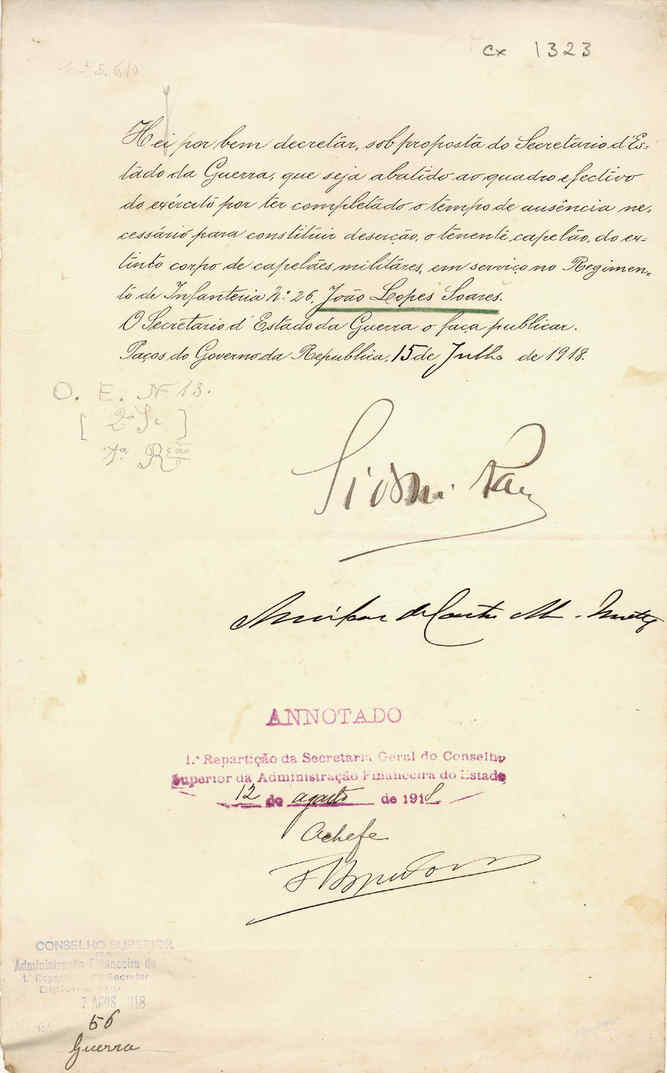 cx 1323
Hei por bem decretar, sob proposta do Secretario d'Es-
tado da Guerra, que seja abatido ao quadro efectivo
do exército por ter completado o tempo de ausência ne-
cessário para constituir deserção, o tenente capelão, do ex-
tinto corpo de capelães militares, em serviço no Regimen-
to de Infanteria N.º 26, João Lopes Soares.
O Secretario d'Estado da Guerra o faça publicar.
Paços do Governo da Republica, 15 de Julho de 1918.
O. E. Nº 13.
[ 2ª Se. ]
Sidonio Paes
ANNOTADO
1.ª Repartição da Secretaria Geral do Conselho
Superior da Administração Financeira do Estado
12 de agosto de 1918
O chefe
CONSELHO SUPERIOR
Administração Financeira do
7 AGOS 918
56
Guerra